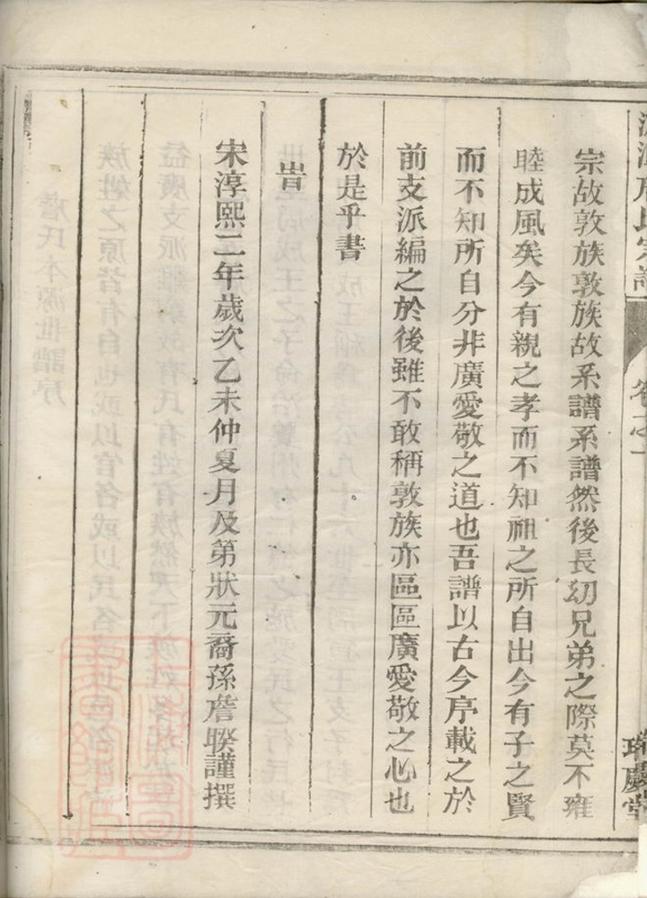 宗故敦族敦族故系譜系譜然後長幼兄弟之際莫不雍
睦成風矣今有親之孝而不知祖之所自出今有子之賢
而不知所自分非廣愛敬之道也吾譜以古今序載之於
前支派編之於後雖不敢稱敦族亦區區廣愛敬之心也
於是乎書
旹
宋淳熙二年歲次乙未仲夏月及第狀元裔孫詹騤謹撰